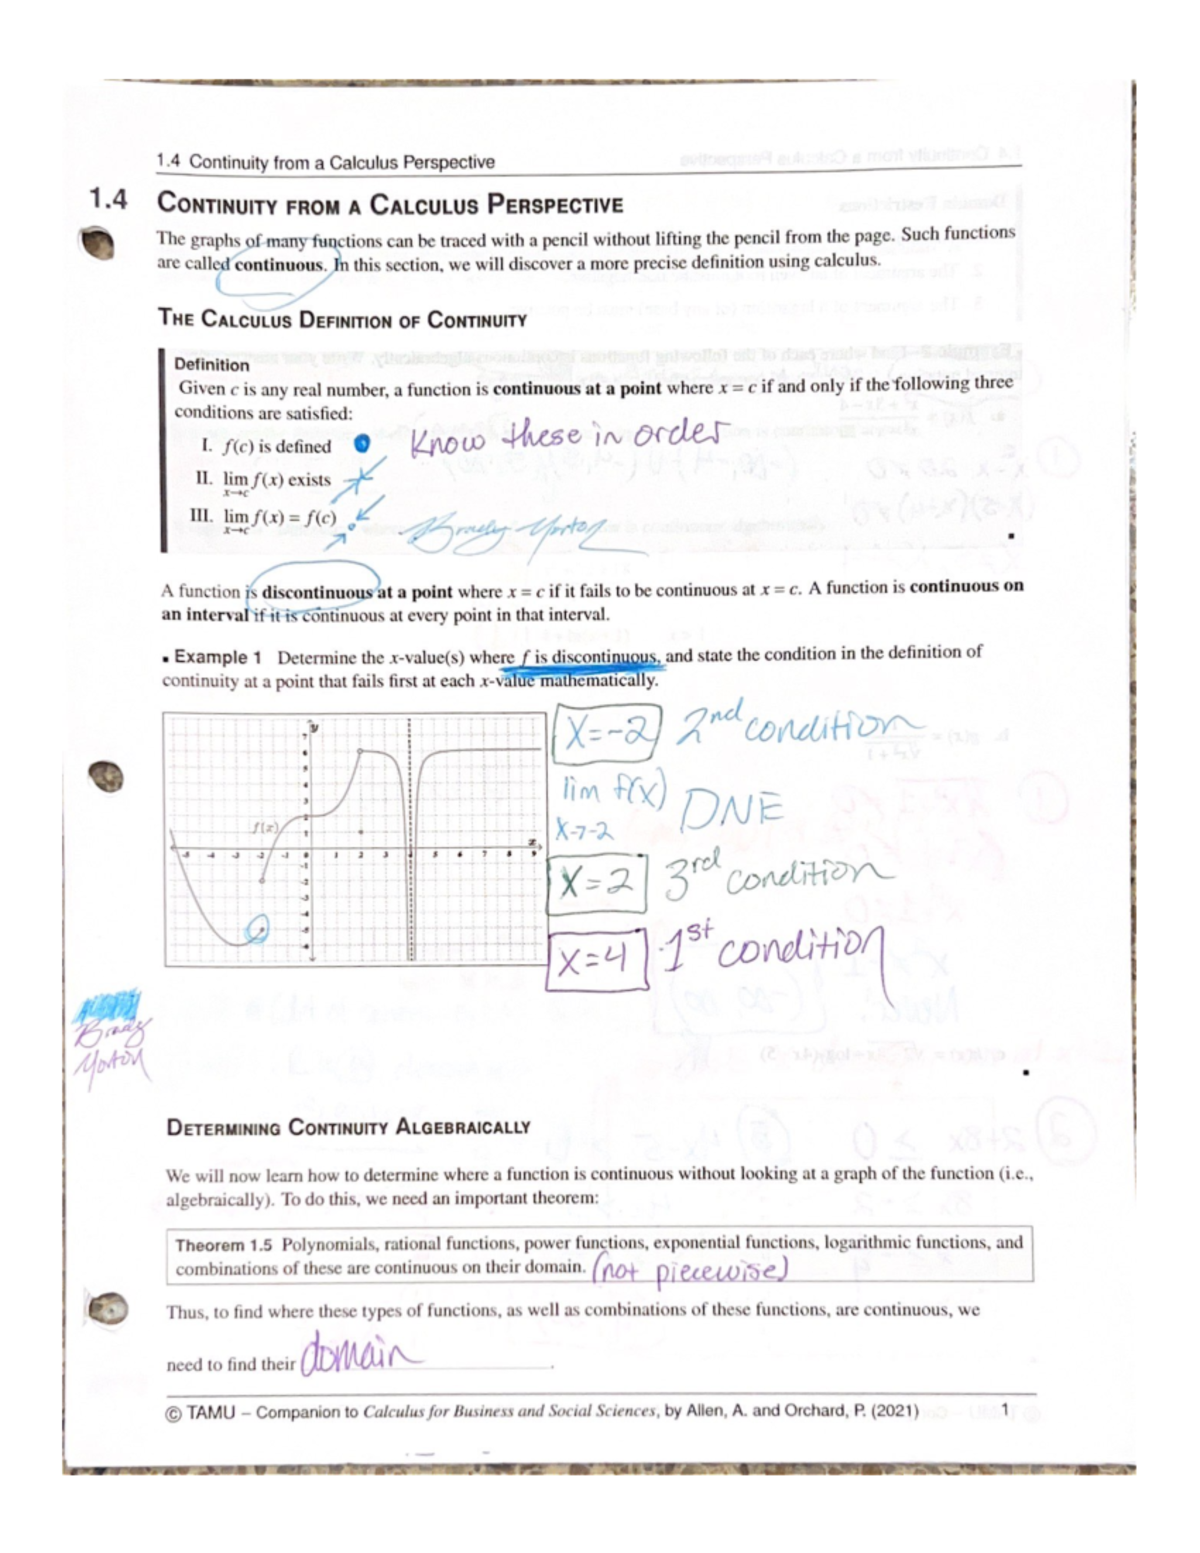 1.4 Continuity from a Calculus Perspective
1.4 CONTINUITY FROM A CALCULUS PERSPECTIVE
The graphs of many functions can be traced with a pencil without lifting the pencil from the page. Such functions
are called continuous. In this section, we will discover a more precise definition using calculus.
THE CALCULUS DEFINITION OF CONTINUITY
Definition
Given c is any real number, a function is continuous at a point where x = c if and only if the following three
conditions are satisfied:
I. f(c) is defined
Know these in order
II. lim f(x) exists
x→c
III. lim f(x) = f(c)
x→c
Brady Morton
A function is discontinuous at a point where x = c if it fails to be continuous at x = c. A function is continuous on
an interval if it is continuous at every point in that interval.
▪ Example 1 Determine the x-value(s) where f is discontinuous, and state the condition in the definition of
continuity at a point that fails first at each x-value mathematically.
y
f(x)
x
X=-2 2nd condition
lim f(x) DNE
X→-2
X=2 3rd condition
X=4 1st condition
Brady
Morton
DETERMINING CONTINUITY ALGEBRAICALLY
We will now learn how to determine where a function is continuous without looking at a graph of the function (i.e.,
algebraically). To do this, we need an important theorem:
Theorem 1.5 Polynomials, rational functions, power functions, exponential functions, logarithmic functions, and
combinations of these are continuous on their domain. (not piecewise)
Thus, to find where these types of functions, as well as combinations of these functions, are continuous, we
need to find their domain.
© TAMU – Companion to Calculus for Business and Social Sciences, by Allen, A. and Orchard, P. (2021) 1